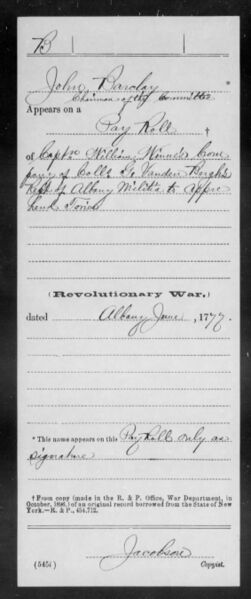 B
John Barclay
Chairman of the Committee
Appears on a
Pay Roll †
of Captn William Winne's Com
pany of Coll. G. Vanden Bergh's
Regt of Albany Militia to appre
hend Tories
(Revolutionary War.)
dated Albany June, 1777.
*This name appears on this Pay Roll only as
signature
†From copy (made in the R. & P. Office, War Department, in
October, 1896,) of an original record borrowed from the State of New
York.—R. & P., 454,712.
Jacobson
(545i) Copyist.